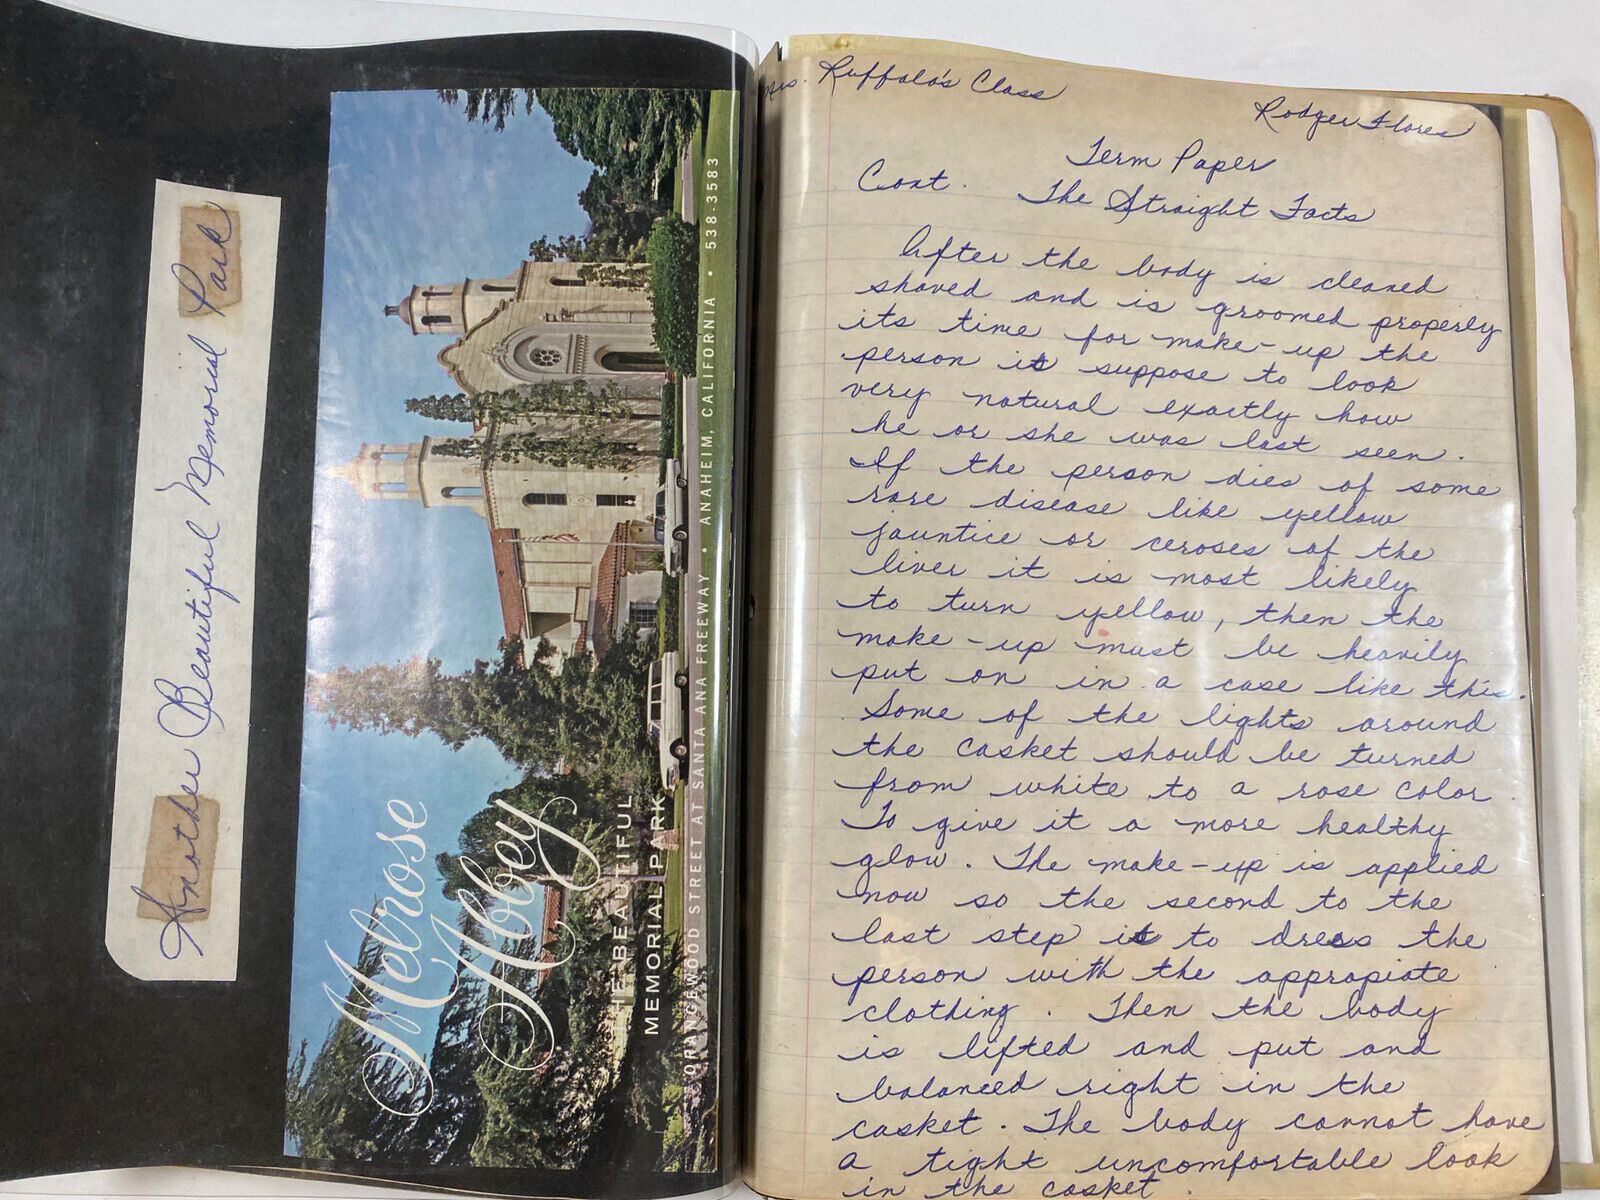 Another Beautiful Memorial Park
Melrose
Abbey
THE BEAUTIFUL
MEMORIAL PARK
ORANGEWOOD STREET AT SANTA ANA FREEWAY • ANAHEIM, CALIFORNIA • 538-3583
Mrs. Ruffalo's Class
Rodger Flores
Term Paper
Cont. The Straight Facts
After the body is cleaned
shaved and is groomed properly
its time for make-up the
person is suppose to look
very natural exactly how
he or she was last seen.
If the person dies of some
rare disease like yellow
jauntice or ceroses of the
liver it is most likely
to turn yellow, then the
make-up must be heavily
put on in a case like this.
Some of the lights around
the casket should be turned
from white to a rose color
To give it a more healthy
glow. The make-up is applied
now so the second to the
last step is to dress the
person with the appropiate
clothing. Then the body
is lifted and put and
balanced right in the
casket. The body cannot have
a tight uncomfortable look
in the casket.